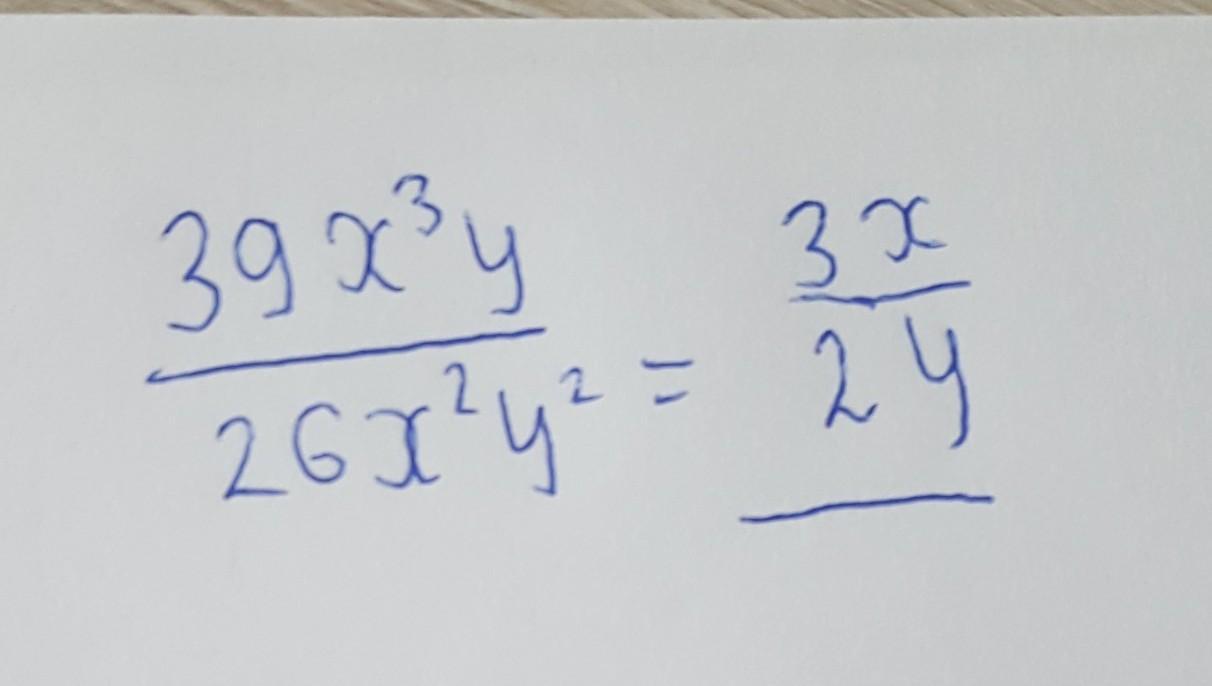 39x³y / 26x²y² = 3x / 2y